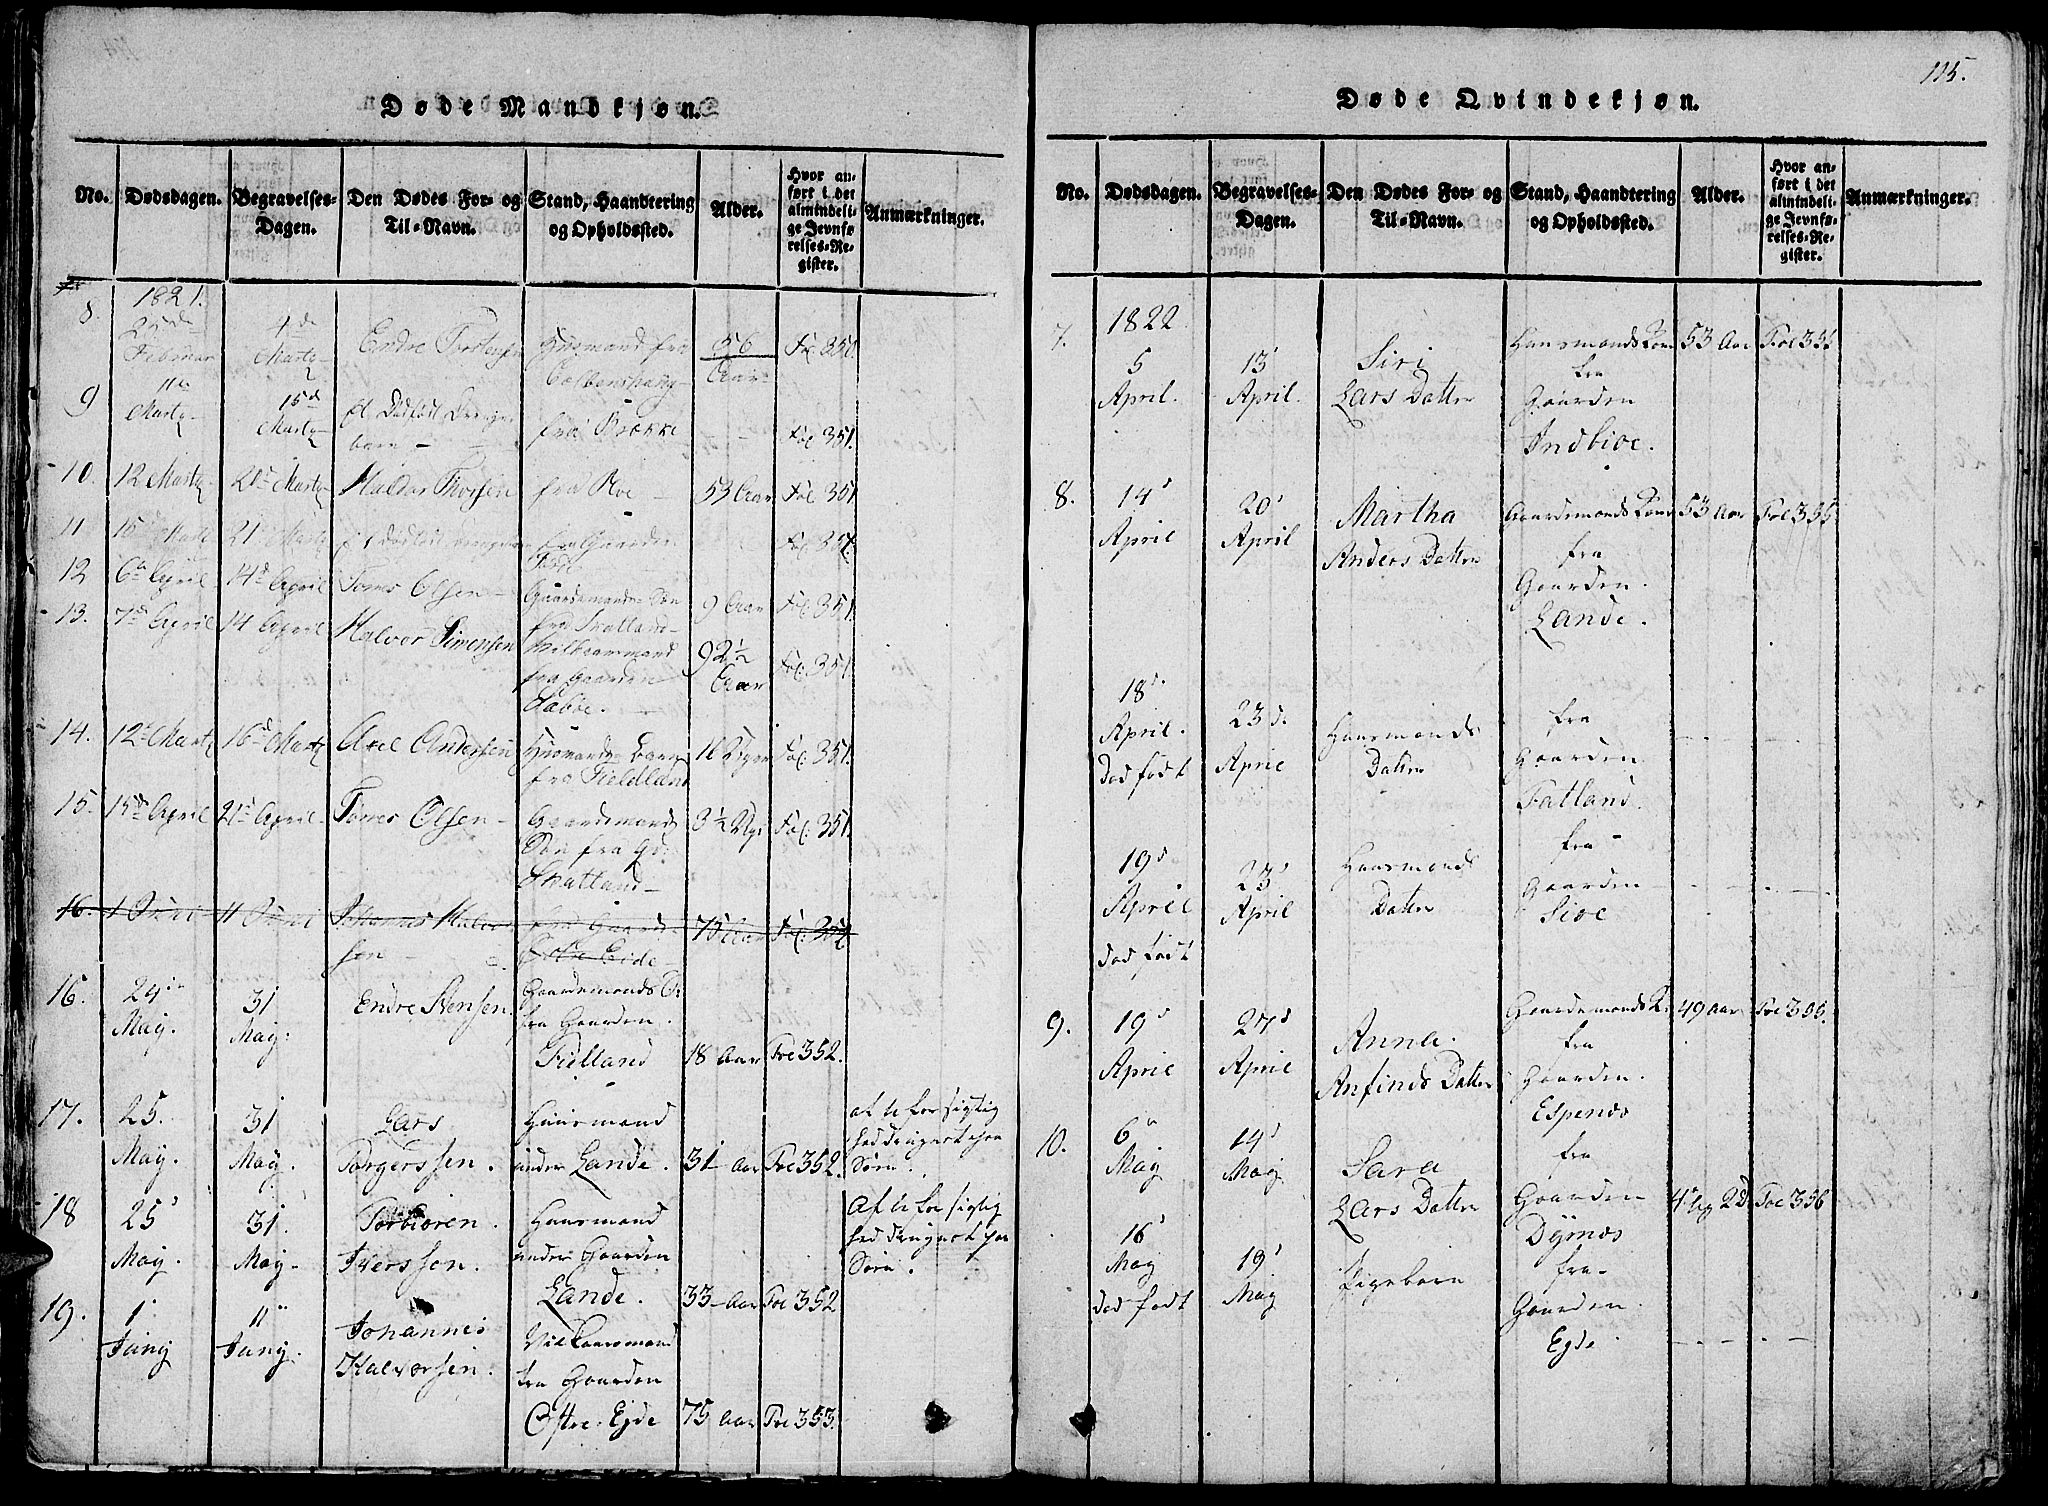 115.
Døde Mandkjøn.
No. Dødsdagen. Begravelses-Dagen. Den Dødes For- og Til-Navn. Stand, Haandtering og Opholdssted. Alder. Hvor anført i det almindelige Jevnførelses-Register. Anmærkninger.
1821.
8. 25de Februar 4de Marty Endre Torstensen Huusmand fra 56 Aar Fol. 350.
9 11te Marty 15de Marty et Dødfødt Drengebarn fra Brække Fol. 351.
10. 12 Marty 21de Marty Haldor Thorsen fra Roe 53 Aar Fol 351
11 15de Marty 21 Marty et dødfødt Drengebarn fra Gaarden Fol. 351.
12 6te April 14de April Tormes Olsen Gaardmands Søn fra Skatland 9 Aar Fol. 351.
13. 7de April 14 April Halvor Simensen Vilkaarsmand fra Gaarden 92½ Aar Fol. 351.
14. 12te Marty 16de Marty Axel Andersen Huusmands Barn fra Fieldland 16 Uger Fol. 351.
15. 15de April 21de April Tormes Olsen Gaardmands Søn fra Gd: Skatland 3½ Uge Fol. 351.
16. 1 Juni 11 Juni Johannes Halvorsen fra Gaarden Østre Eide 75 Aar Fol. 352
16. 24de May. 31 May. Endre Stensen. Gaardemands S: fra Gaarden. Fidland 18 Aar Foe 352.
17. 25. May. 31 May. Lars Torgerssen. Huusmand under Lande. 31 Aar Foe 352. af Uforsigtighed druknet paa Søen.
18 25 May. 31. May. Torbioren. Iverssen. Huusmand under Gaarden Lande. 33 Aar Foe 352 Af Uforsigtighed druknet paa Søen.
19. 1 Juny 11 Juny. Johannes Halvorsen. Vilkaarsmand fra Gaarden Østre. Egde 75 Aar Foe 353.
Døde Qvindekjøn.
No. Dødsdagen. Begravelses-Dagen. Den Dødes For- og Til-Navn. Stand, Haandtering og Opholdssted. Alder. Hvor anført i det almindelige Jevnførelses-Register. Anmærkninger.
1822
7. 5 April. 13 April. Siri Lars Datter Huusmands Kone fra Gaarden Indbioe. 53 Aar Foe 355
8. 14 April 20 April Martha Anders Datter Gaardemands Kone fra Gaarden. Lande. 53 Aar Foe 355
18 April. Død født 23 d. April Huusmands Datter fra Gaarden Fatland.
19 April død født 23 April Huusmands Datter fra Gaarden Sioe
9. 19 April 27 April Anna. Anfinds Datter Gaardemands K. fra Gaarden. Espenes 49 Aar Foe 355.
10. 6 May 14 May Sara Lars Datter fra Gaarden Dyrnes 4 Ug 2 D Foe 356
16 May død født 19 May Pigebarn fra Gaarden. Egde